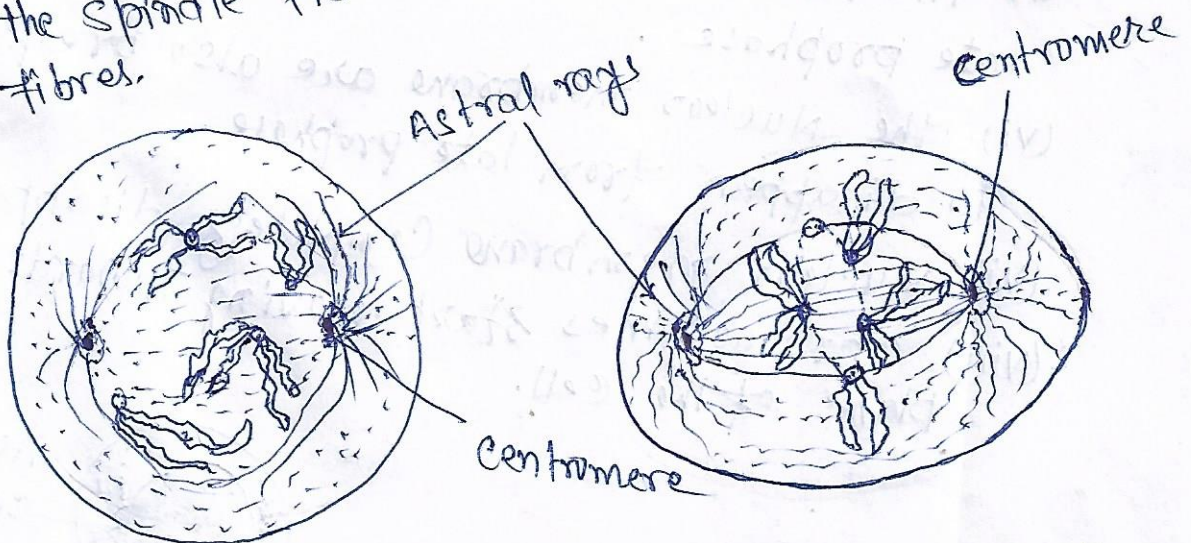 the spindle
fibres.
Astral rays
centromere
centromere